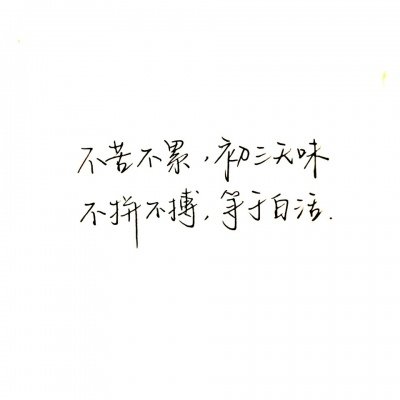 不苦不累，初三无味
不拼不搏，等于白活.